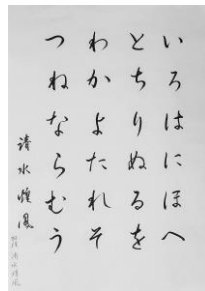 いろはにほへ
とちりぬるを
わかよたれそ
つねならむう
清水